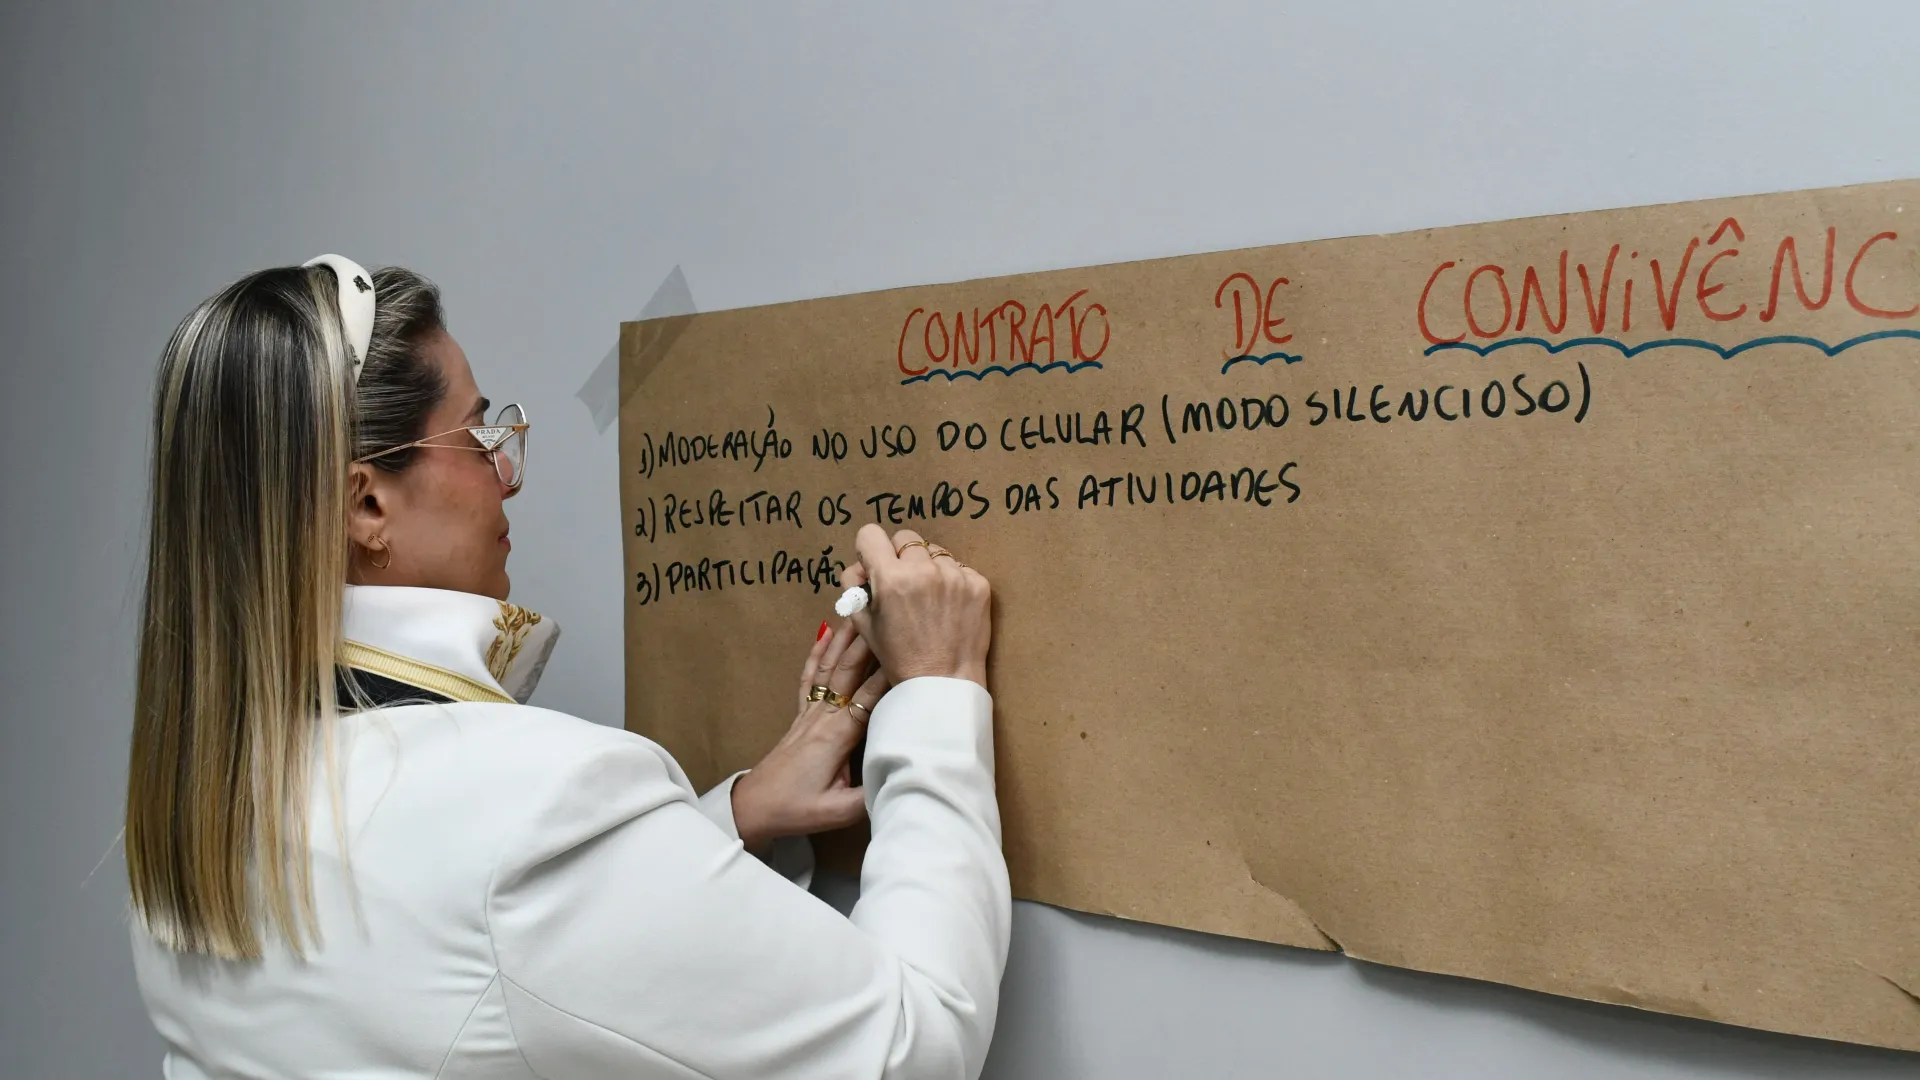 CONTRATO DE CONVIVÊNC
1) MODERAÇÃO NO USO DO CELULAR (MODO SILENCIOSO)
2) RESPEITAR OS TEMPOS DAS ATIVIDADES
3) PARTICIPAÇÃO
PRADA